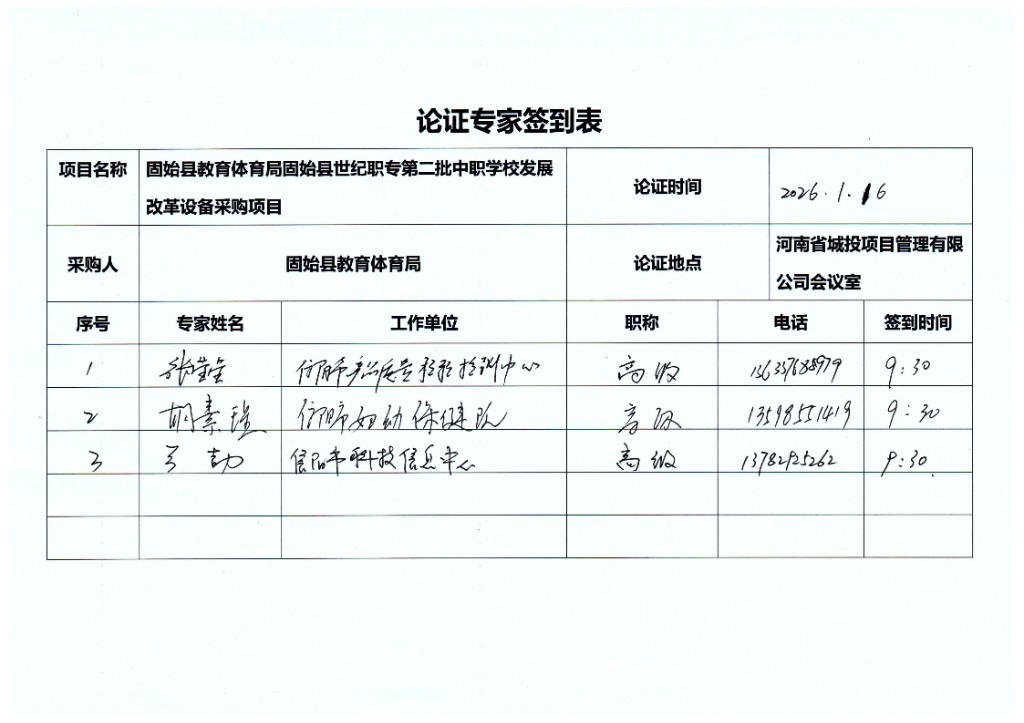 论证专家签到表
项目名称 固始县教育体育局固始县世纪职专第二批中职学校发展
改革设备采购项目
论证时间 2026.1.16
采购人 固始县教育体育局 论证地点 河南省城投项目管理有限
公司会议室
序号 专家姓名 工作单位 职称 电话 签到时间
1 信阳市产品质量检验检测中心 高级 9:30
2 胡素瑾 信阳市妇幼保健院 高级 13598551419 9:30
3 信阳市科技信息中心 高级 13782925262 9:30